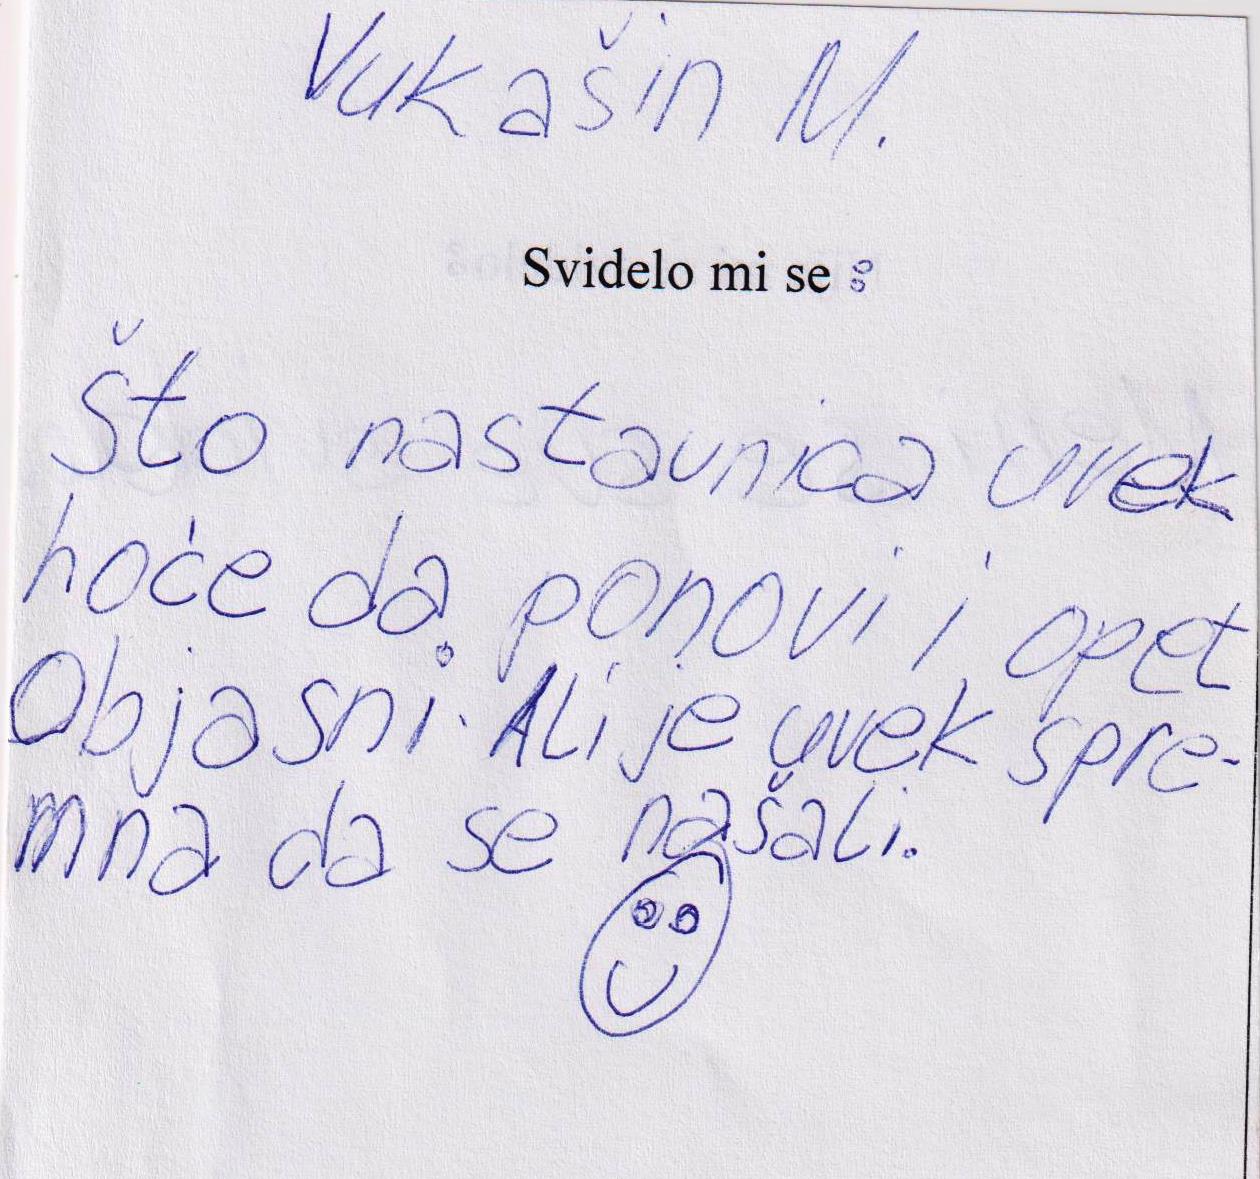 Vukašin M.
Svidelo mi se :
što nastavnica uvek
hoće da ponovi i opet
Objasni. Ali je uvek spre-
mna da se našali.